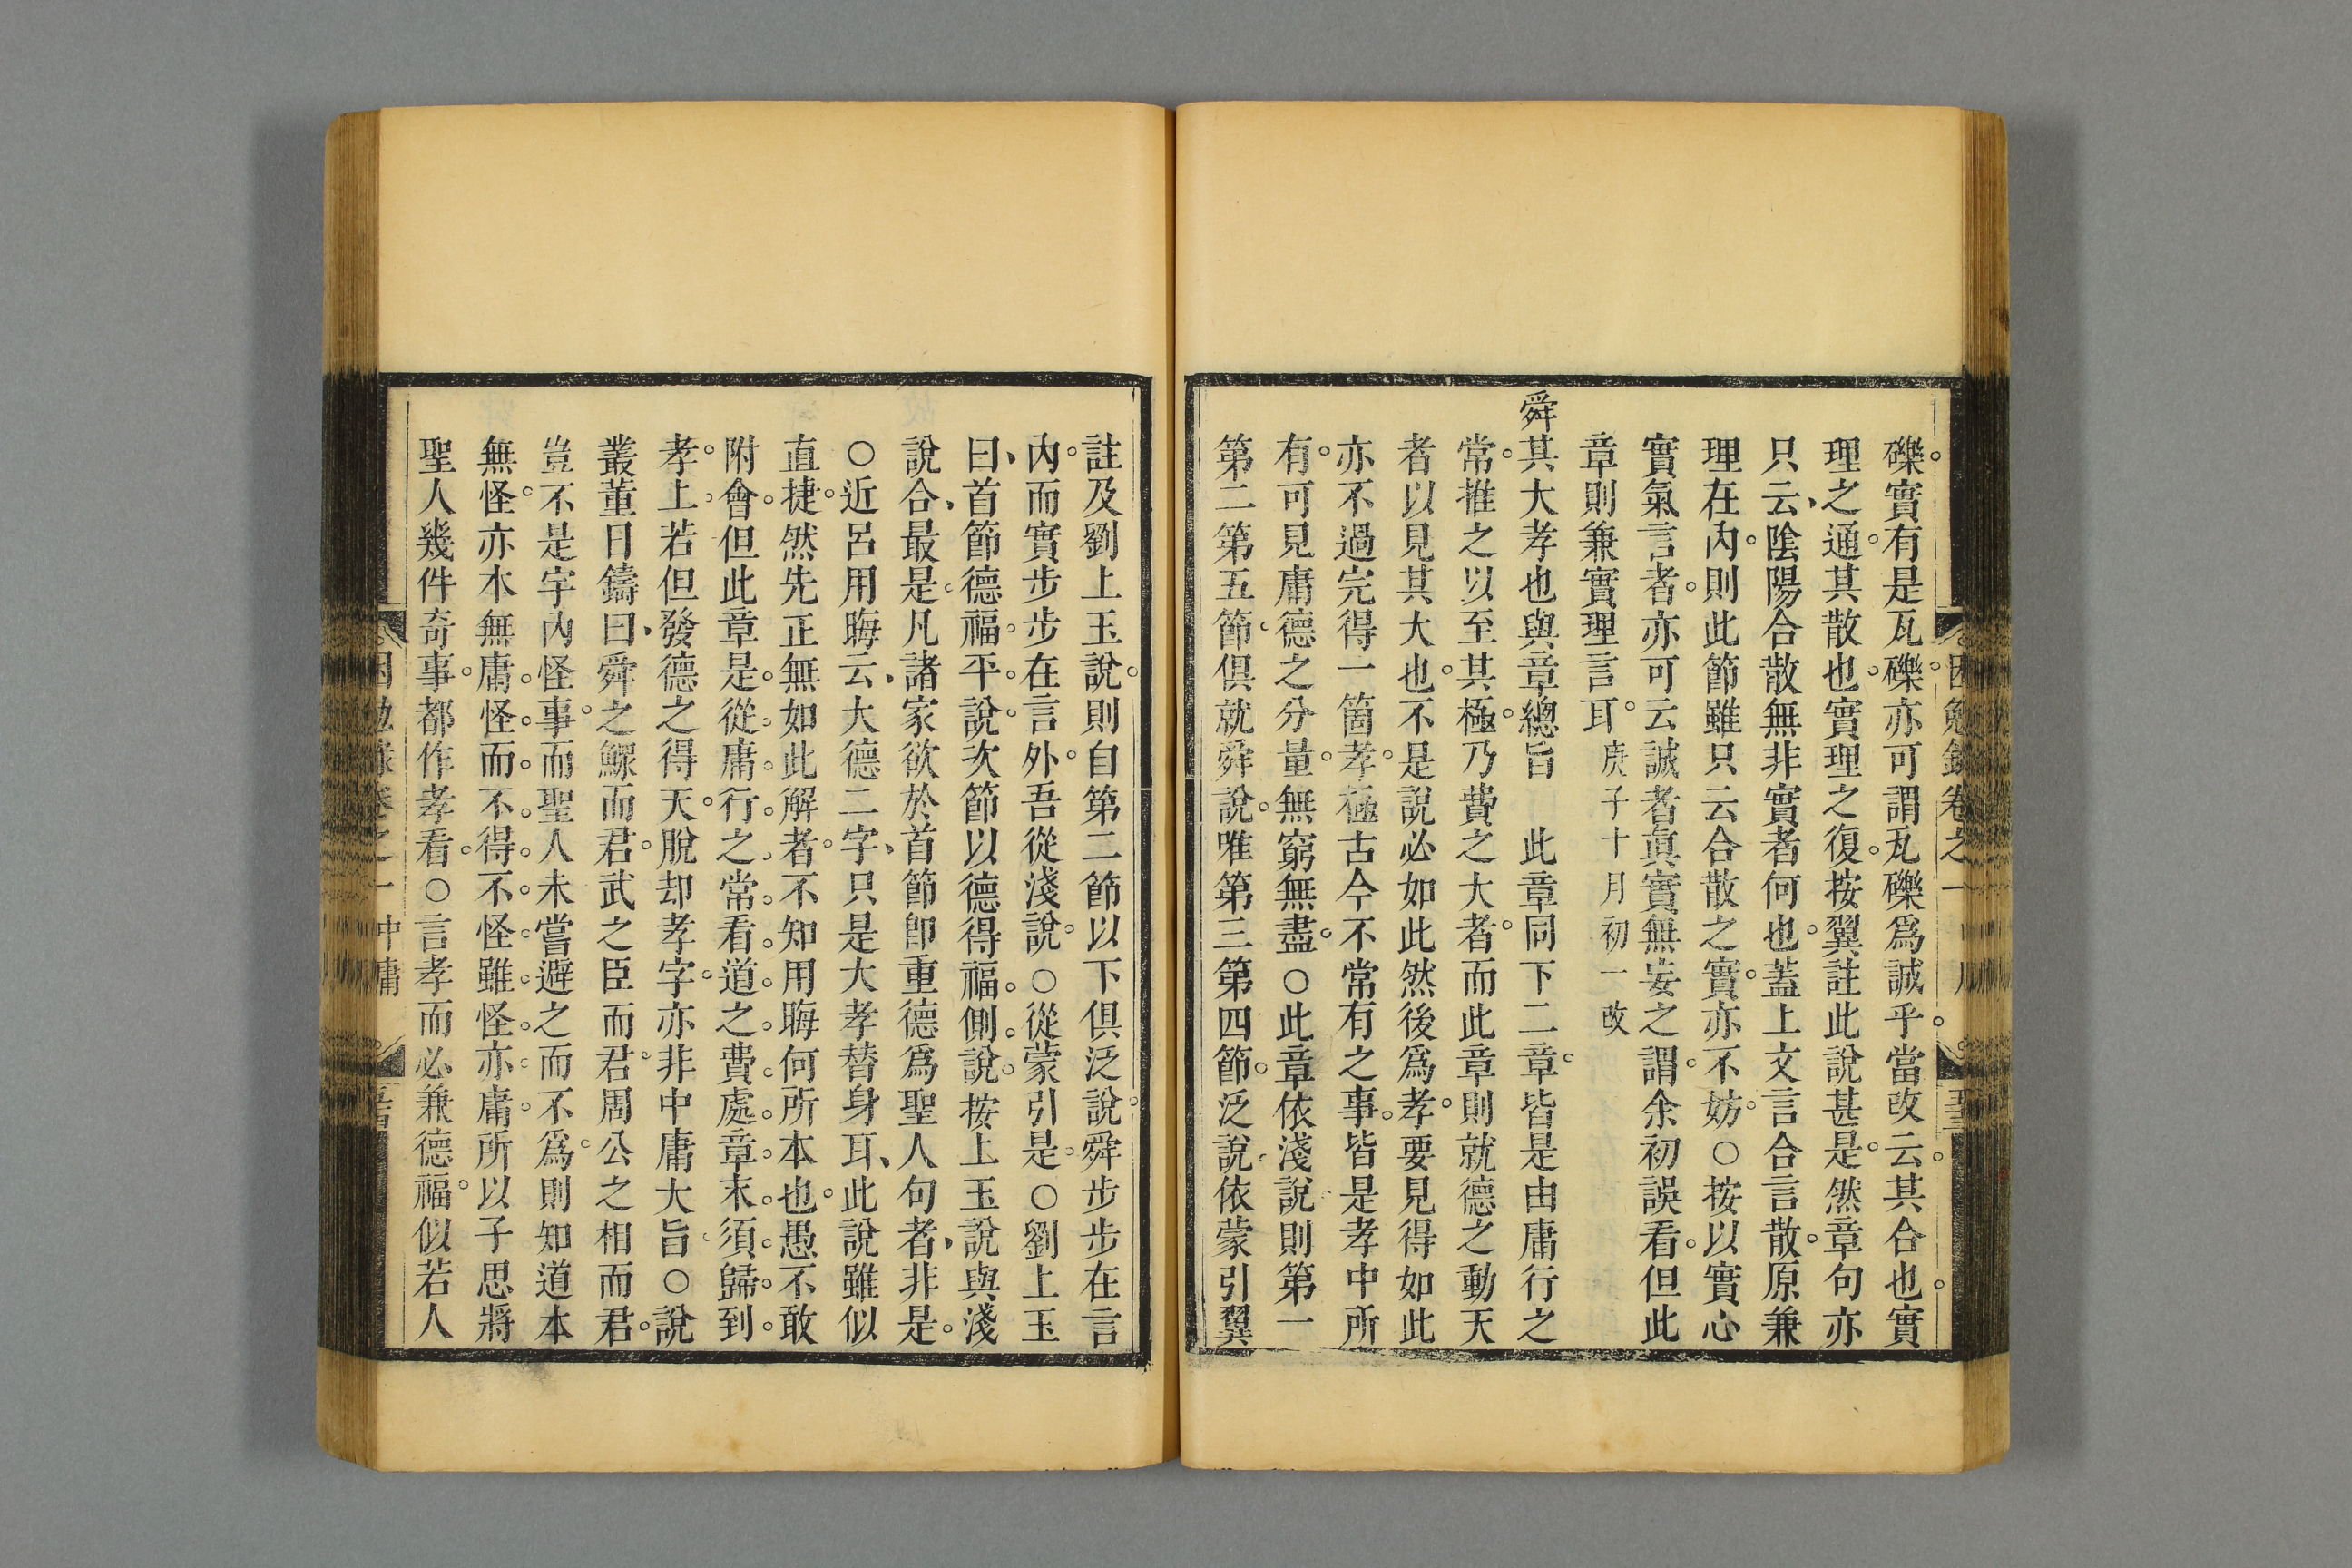 礫實有是瓦礫亦可謂瓦礫爲誠乎當改云其合也實
理之通其散也實理之復按翼註此說甚是然章句亦
只云陰陽合散無非實者何也蓋上文言合言散原兼
理在內則此節雖只云合散之實亦不妨○按以實心
實氣言者亦可云誠者眞實無妄之謂余初誤看但此
章則兼實理言耳庚子十月初一改
舜其大孝也與章總旨 此章同下二章皆是由庸行之
常推之以至其極乃費之大者而此章則就德之動天
者以見其大也不是說必如此然後爲孝要見得如此
亦不過完得一箇孝極古今不常有之事皆是孝中所
有可見庸德之分量無窮無盡○此章依淺說則第一
第二第五節俱就舜說唯第三第四節泛說依蒙引翼
註及劉上玉說則自第二節以下俱泛說舜步步在言
內而實步步在言外吾從淺說○從蒙引是○劉上玉
曰首節德福平說次節以德得福側說按上玉說與淺
說合最是凡諸家欲於首節卽重德爲聖人句者非是
○近呂用晦云大德二字只是大孝替身耳此說雖似
直捷然先正無如此解者不知用晦何所本也愚不敢
附會但此章是從庸行之常看道之費處章末須歸到
孝上若但發德之得天脫却孝字亦非中庸大旨○說
叢董日鑄曰舜之鰥而君武之臣而君周公之相而君
豈不是宇內怪事而聖人未嘗避之而不爲則知道本
無怪亦本無庸怪而不得不怪雖怪亦庸所以子思將
聖人幾件奇事都作孝看○言孝而必兼德福似若人
困勉錄卷之一 中庸